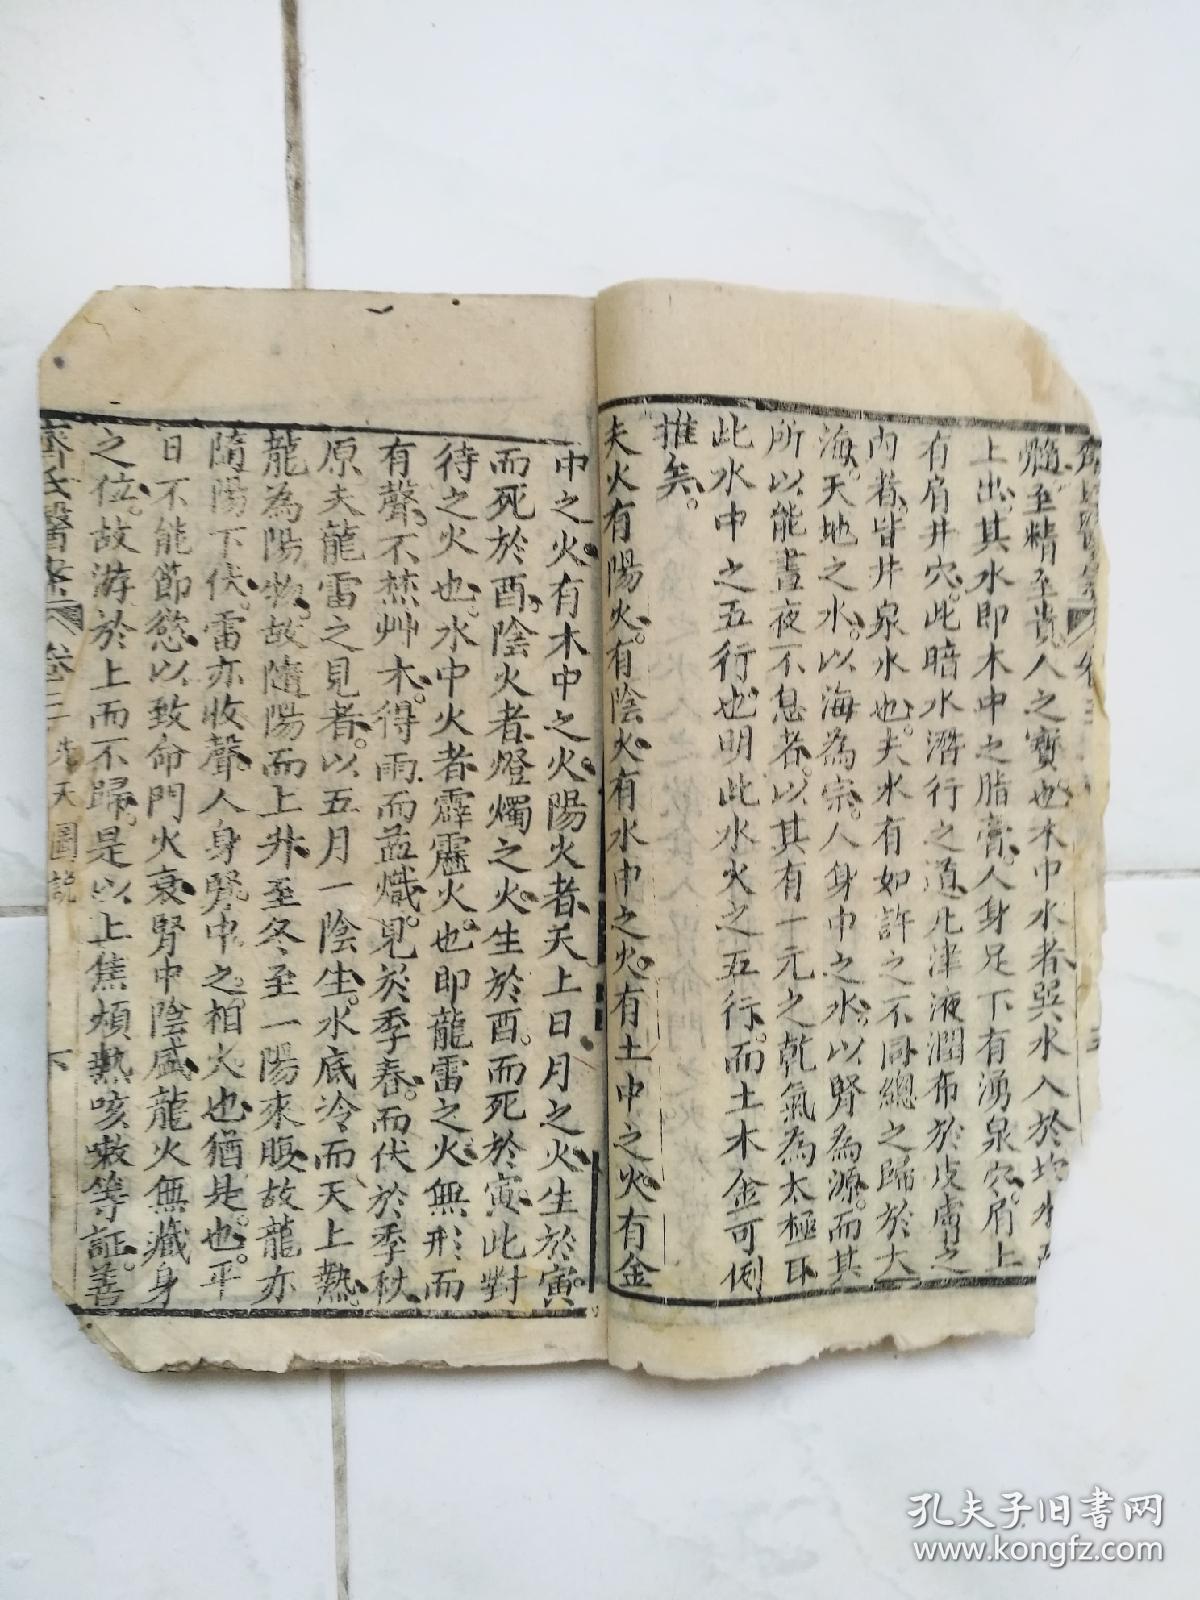 髓。至精至貴人之寶也。木中水者。巽水入於坎水而
上出。其水即木中之脂膏。人身足下有湧泉穴。肩上
有肩井穴。此暗水潛行之道。凡津液潤布於皮膚之
內者。皆井泉水也。夫水有如許之不同。總之歸於大
海。天地之水。以海為宗。人身中之水。以腎為源。而其
所以能晝夜不息者。以其有一元之乾氣為太極耳
此水中之五行也。明此水火之五行。而土木金可例
推矣。
夫火有陽火。有陰火。有水中之火。有土中之火。有金
中之火。有木中之火。陽火者。天上日月之火。生於寅。
而死於酉。陰火者。燈燭之火。生於酉。而死於寅。此對
待之火也。水中火者。霹靂火也。即龍雷之火。無形而
有聲。不焚艸木。得雨而益熾。見於季春。而伏於季秋
原夫龍雷之見者。以五月一陰生。水底冷而天上熱。
龍為陽物。故隨陽而上升。至冬至一陽來復。故龍亦
隨陽下伏。雷亦收聲。人身腎中之相火也。猶是也。平
日不能節慾。以致命門火衰。腎中陰盛。龍火無藏身
之位。故游於上而不歸。是以上焦煩熱咳嗽等証。善
齊氏醫案 卷二 先天圖說 下
孔夫子旧书网
www.kongfz.com